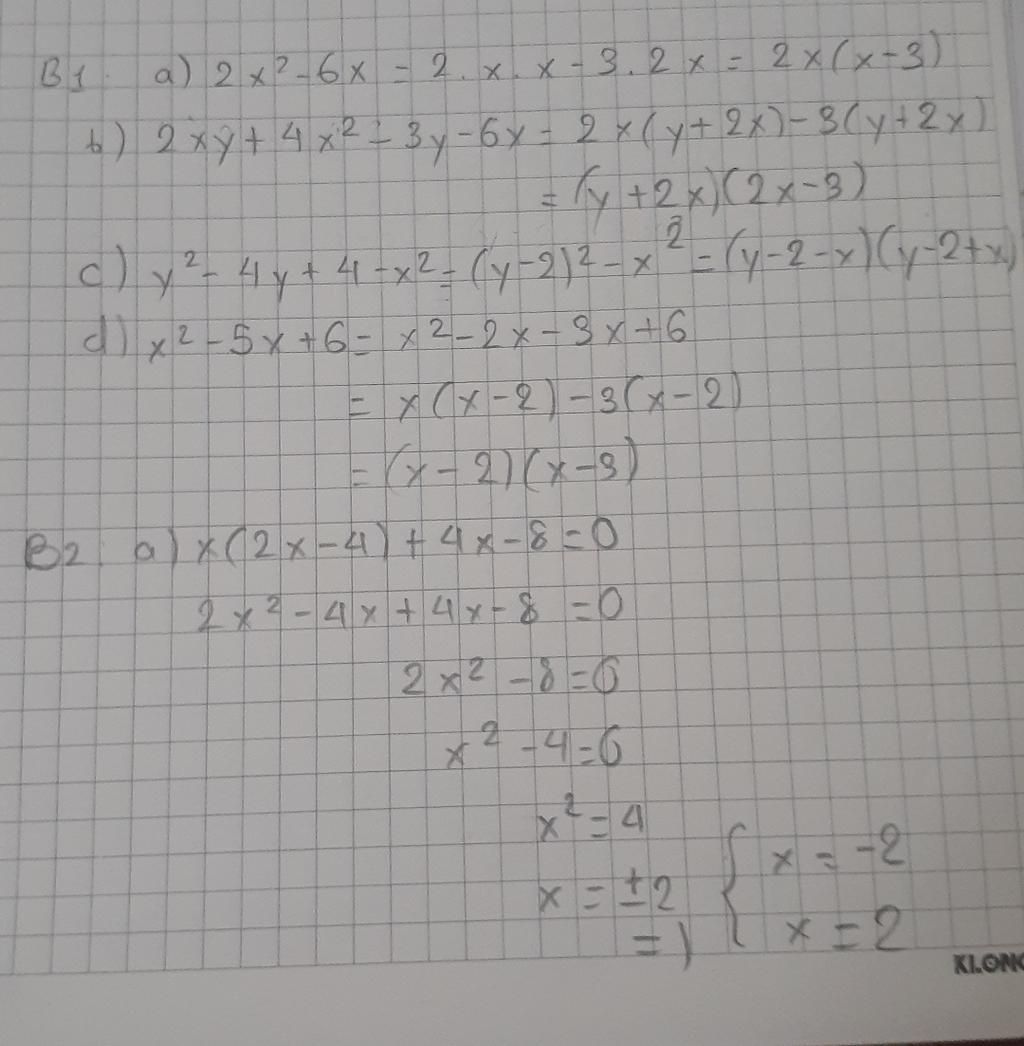 B1. a) 2x² - 6x = 2 . x . x - 3 . 2x = 2x(x-3)
b) 2xy + 4x² - 3y - 6x = 2x(y+2x) - 3(y+2x)
= (y+2x)(2x-3)
c) y² - 4y + 4 - x² = (y-2)² - x² = (y-2-x)(y-2+x)
d) x² - 5x + 6 = x² - 2x - 3x + 6
= x(x-2) - 3(x-2)
= (x-2)(x-3)
B2. a) x(2x-4) + 4x - 8 = 0
2x² - 4x + 4x - 8 = 0
2x² - 8 = 0
x² - 4 = 0
x² = 4
x = ±2
=) { x = -2
x = 2
KLONG